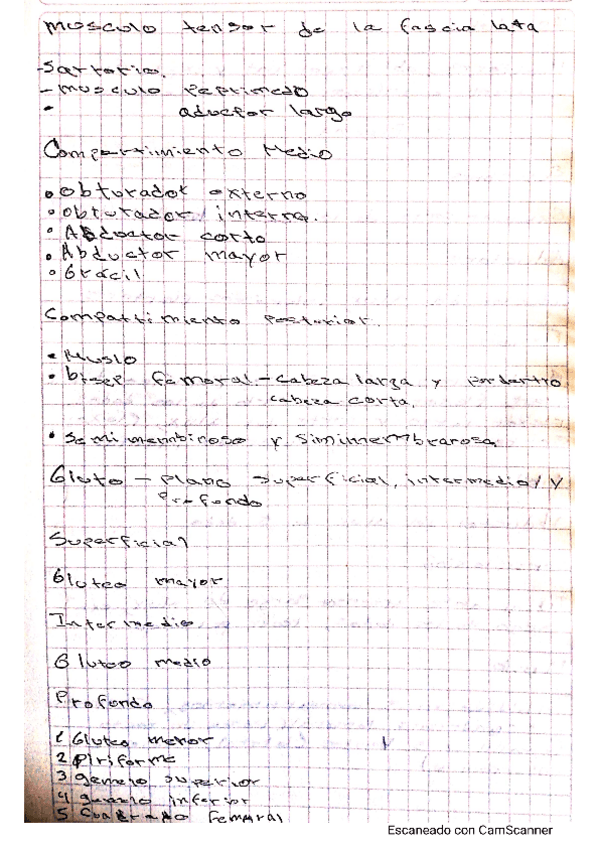 musculo tensor de la fascia lata
-Sartorio.
-musculo peptimedo
• aductor largo
Compartimiento Medio
• obturador externo
• obturador interno.
• Abductor corto
• Abductor mayor
• Grácil
Compartimiento Posturior.
• Muslo
• bisep femoral - cabeza larga y por dentro
cabeza corta.
• Semimenbinoso y Simimembrarosa
Gluto - plano superficial, intermedio / y
Profondo
Superficial
Gluteo mayor
Intermedio
Gluteo medio
Profondo
1 Gluteo menor
2 Piriforme
3 gemelo superior
4 gemelo inferior
5 Cuadrado femoral
Escaneado con CamScanner